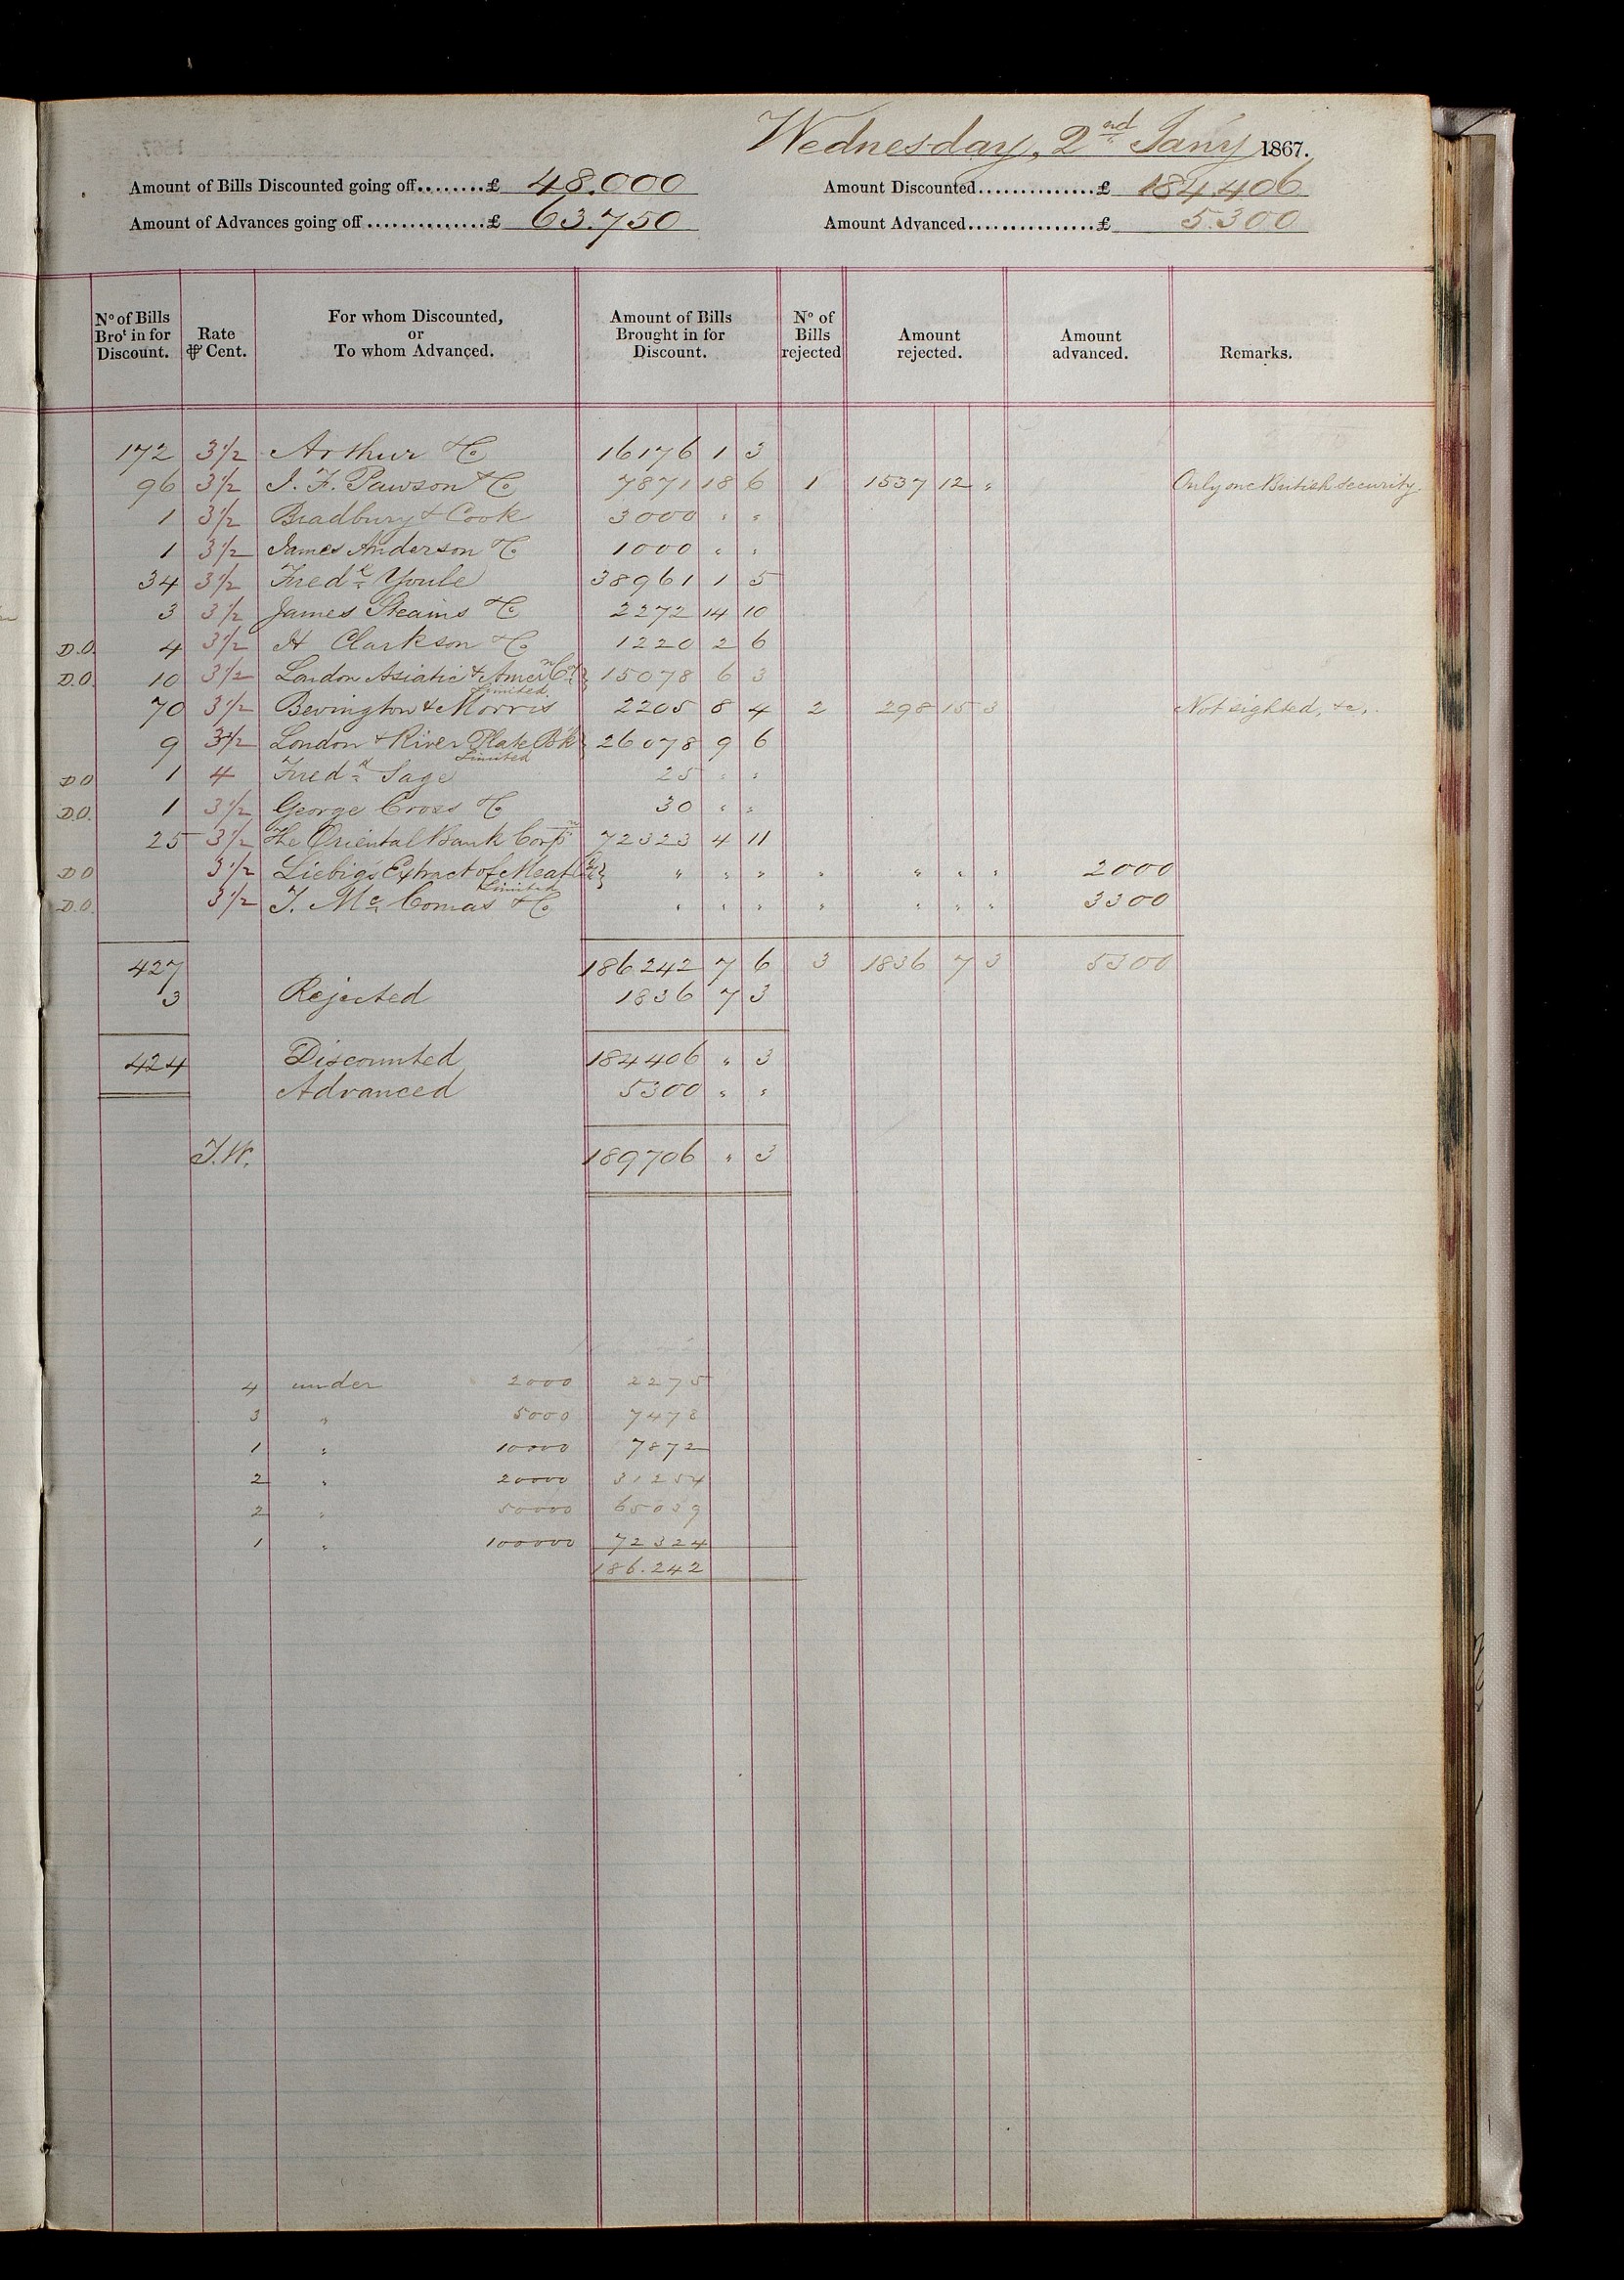 Wednesday, 2nd Jany 1867.
Amount of Bills Discounted going off........£ 48.000 Amount Discounted..............£ 184.406
Amount of Advances going off..............£ 63.750 Amount Advanced...............£ 5.300
No of Bills Brot in for Discount. Rate ⅌ Cent. For whom Discounted, or To whom Advanced. Amount of Bills Brought in for Discount. No of Bills rejected Amount rejected. Amount advanced. Remarks.
172 3 1/2 Arthur & Co 16176 1 3
96 3 1/2 J. F. Pawson & Co 7871 18 6 1 1537 12 " Only one British security
1 3 1/2 Bradbury & Cook 3000 " "
1 3 1/2 James Anderson & Co 1000 " "
34 3 1/2 Fredk Youle 38961 1 5
3 3 1/2 James Steains & Co 2272 14 10
D.O. 4 3 1/2 H Clarkson & Co 1220 2 6
D.O. 10 3 1/2 London Asiatic & Amern Coy 15078 6 3
Limited
70 3 1/2 Bevington & Morris 2205 8 4 2 298 15 3 Not sighted, &c.
9 3 1/2 London & River Plate Bk 26078 9 6
Limited
D O 1 4 Fredk Sage 25 " "
D.O. 1 3 1/2 George Cross & Co 30 " "
25 3 1/2 The Oriental Bank Corpn 72323 4 11
D O 3 1/2 Liebig's Extract of Meat Co " " " " " " " 2000
Limited
D.O. 3 1/2 T. Mc Comas & Co " " " " " " " 3300
427 186242 7 6 3 1836 7 3 5300
3 Rejected 1836 7 3
424 Discounted 184406 " 3
Advanced 5300 " "
J.W. 189706 " 3
4 under 2000 2275
3 " 5000 7478
1 " 10000 7872
2 " 20000 31254
2 " 50000 65039
1 " 100000 72324
186.242